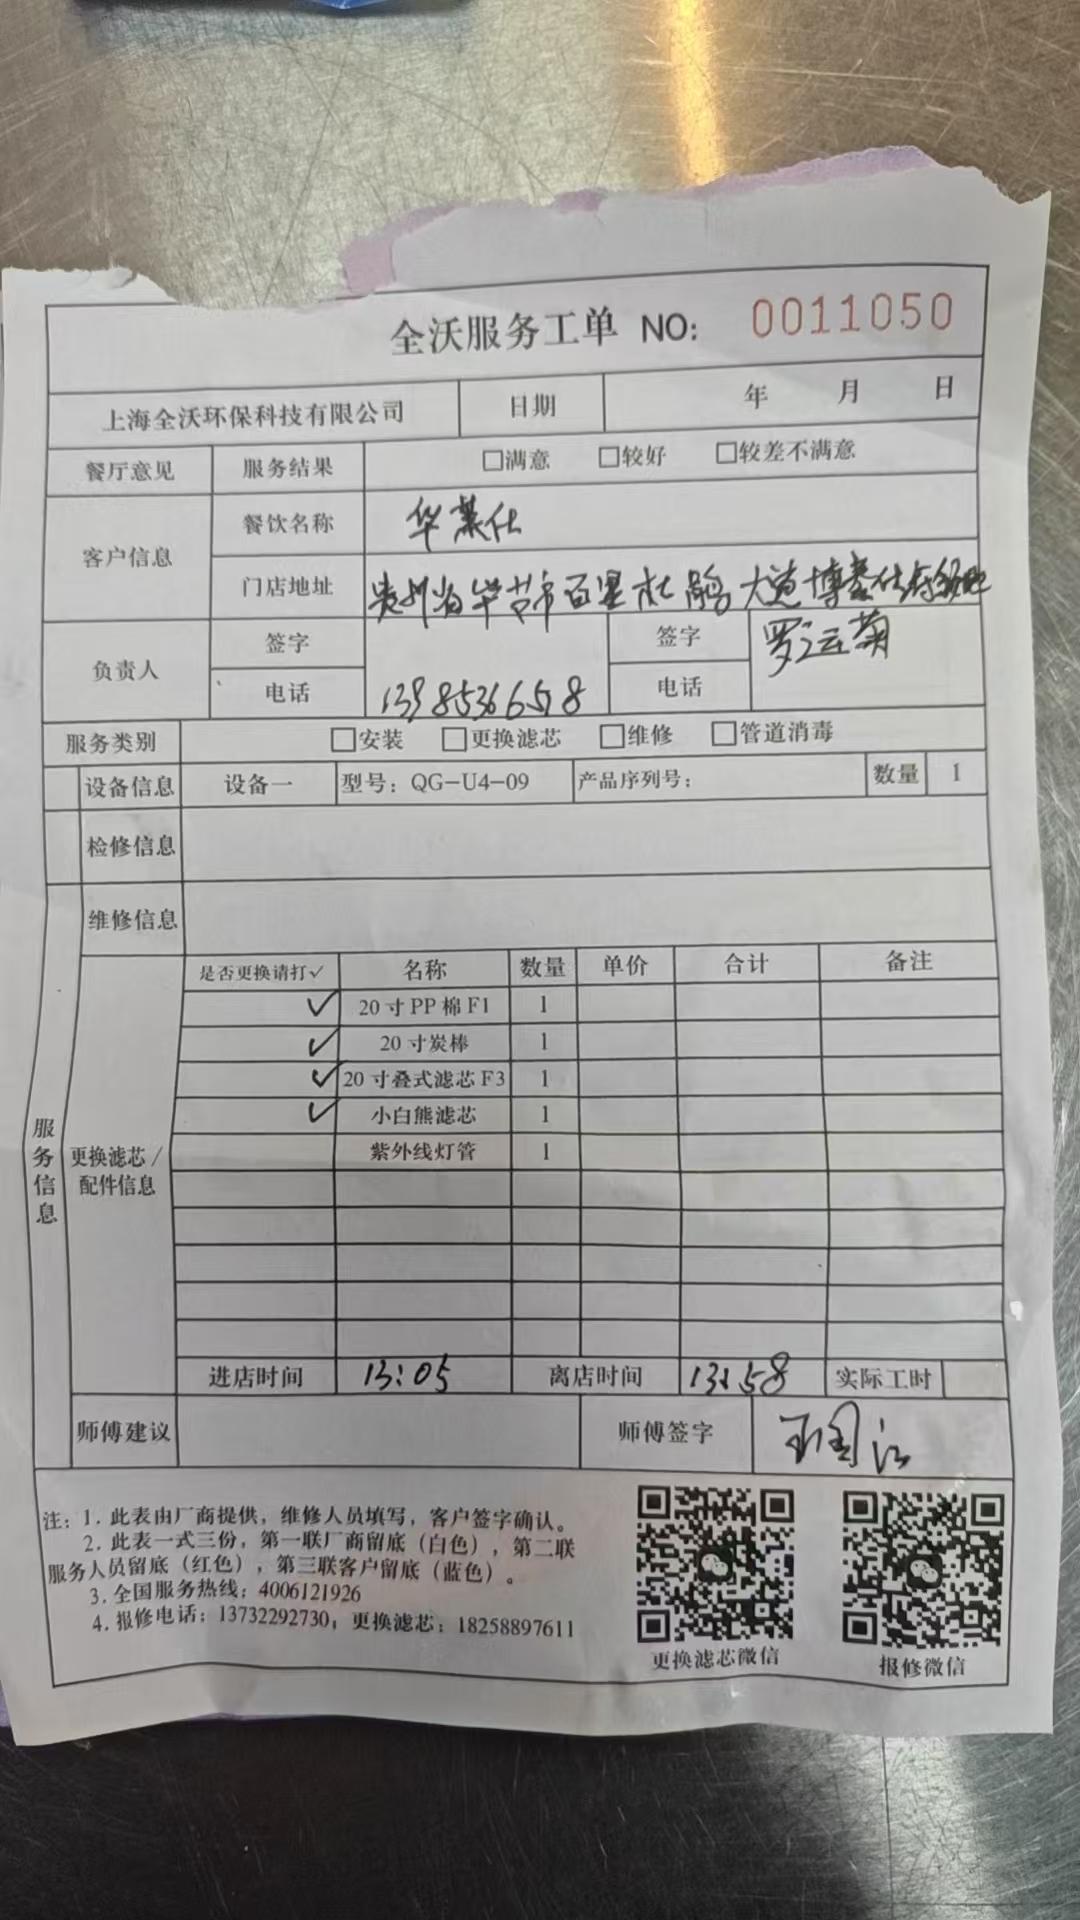 全沃服务工单 NO: 0011050
上海全沃环保科技有限公司 日期 年 月 日
餐厅意见 服务结果 □满意 □较好 □较差不满意
客户信息 餐饮名称 华莱仕
门店地址 贵州省毕节市百里杜鹃大道博泰仕
负责人 签字 签字 罗运菊
电话 13985366518 电话
服务类别 □安装 □更换滤芯 □维修 □管道消毒
设备信息 设备一 型号：QG-U4-09 产品序列号： 数量 1
检修信息
维修信息
服务信息
更换滤芯/配件信息
是否更换请打✓ 名称 数量 单价 合计 备注
✓ 20寸PP棉F1 1
✓ 20寸炭棒 1
✓ 20寸叠式滤芯F3 1
✓ 小白熊滤芯 1
紫外线灯管 1
进店时间 13:05 离店时间 13:58 实际工时
师傅建议 师傅签字
注：1. 此表由厂商提供，维修人员填写，客户签字确认。
2. 此表一式三份，第一联厂商留底（白色），第二联
服务人员留底（红色），第三联客户留底（蓝色）。
3. 全国服务热线：4006121926
4. 报修电话：13732292730；更换滤芯：18258897611
更换滤芯微信 报修微信